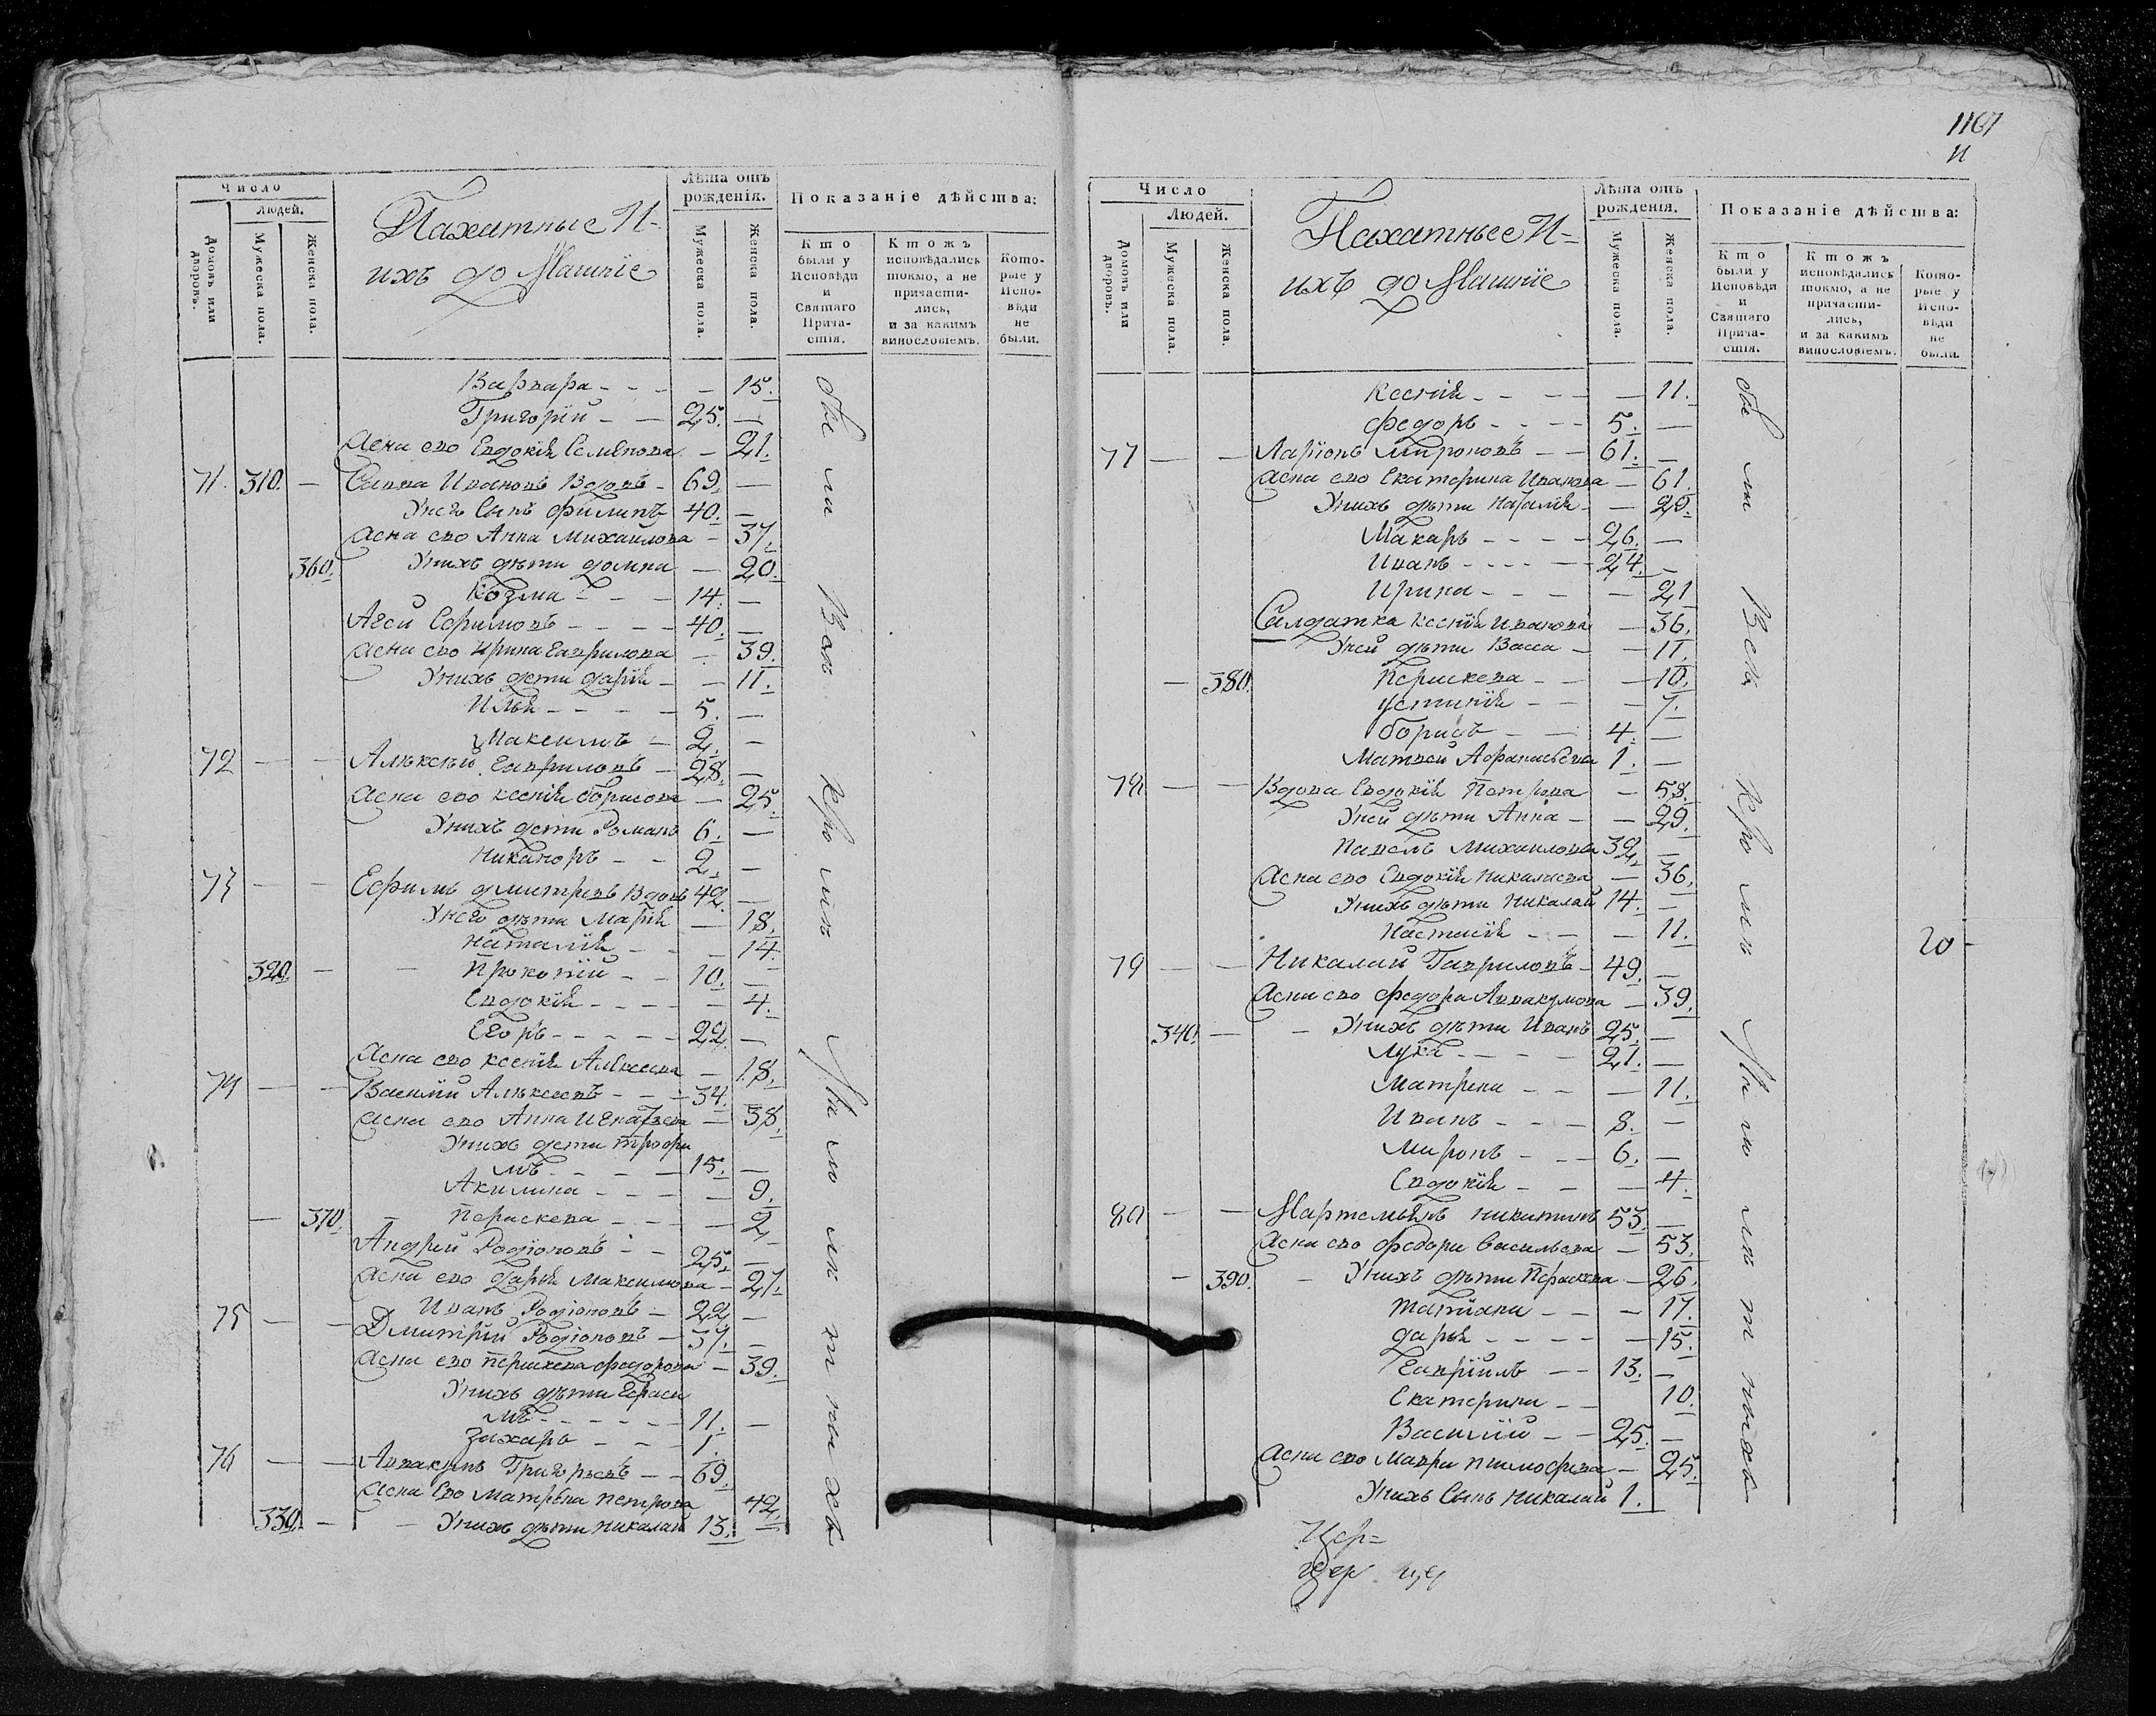 Число
Людей.
Домовъ или дворовъ.
Мужеска пола.
Женска пола.
Пахатные И=
ихъ до Машние
Лѣта отъ рожденія.
Мужеска пола.
Женска пола.
Показаніе дѣйства:
Кто были у Исповѣди и Святаго Прича-стія.
Ктожъ исповѣдались токмо, а не причасти-лись, и за какимъ винословіемъ.
Кото-рые у Испо-вѣди не были.
Варвара - - - - 15.
Григорій - - 25. -
Жена ево Евдокія Семенова - 21.
71. 310. - Савва Ивановъ Вдовъ - 69. -
Унего Сынъ Филипъ 40. -
Жена ево Анна Михаилова - 37.
360. Унихъ дѣти Домна - 20.
Козма - - - 14. -
Агей Ефимовъ - - - 40. -
Жена ево Ирина Гаврилова - 39.
Унихъ дети Дарія - - 11.
Илья - - - - 5. -
Максимъ - 2. -
72 - - Алѣксѣй Гавриловъ - 28. -
Жена ево Ксенія Борисова - 25.
Унихъ дети Романъ 6. -
Никаноръ - - 2. -
73 - - Ефимъ Дмитревъ Вдовъ 42. -
Унего дѣти Марія - 18.
Наталія - - - 14.
320. - - Прокопій - - 10. -
Евдокія - - - - 4.
Егоръ - - - - - 22. -
Жена ево Ксенія Алексеева - 18.
74 - - Василій Алѣксеевъ - - - 34. -
Жена ево Анна Игнатьева - 38.
Унихъ дети Трофи
мъ - - - - 15. -
Акилина - - - - 9.
- 370. - Пераскева - - - - 2.
Андрей Родіоновъ - - 25. -
Жена ево Дарія Максимова - 27.
Иванъ Родіоновъ - 22. -
75 - - Дмитрій Родіоновъ - 37. -
Жена ево Пераскева Федорова - 39.
Унихъ дѣти Гераси
мъ - - - - - - 11. -
Захаръ - - - 1.
76 - - Аввакумъ Григорьевъ - - 69.
Жена Ево Матрена Петрова 42.
330. - - Унихъ дѣти Никалай 13. -
1107
Число
Людей.
Домовъ или дворовъ.
Мужеска пола.
Женска пола.
Пахатные И=
ихъ до Машние
Лѣта отъ рожденія.
Мужеска пола.
Женска пола.
Показаніе дѣйства:
Кто были у Исповѣди и Святаго Прича-стія.
Ктожъ исповѣдались токмо, а не причасти-лись, и за какимъ винословіемъ.
Кото-рые у Испо-вѣди не были.
Ксенія - - - - - 11.
Федоръ - - - - 5. -
77 - - Ларіонъ Мироновъ - - 61. -
Жена ево Екатерина Иванова - 61.
Унихъ дѣти Наталія - -
Макаръ - - - - 26. -
Иванъ - - - - - 24. -
Ирина - - - - - 21
Салдатка Ксенія Иванова - 36.
Уней дѣти Васса - - 11.
- 380. Пераскева - - - 10.
Устинія - - - 7.
Борисъ - - - 4. -
Матвей Афанасьевъ 1. -
78 - - Вдова Евдокія Петрова - 58.
Уней дѣти Анна - - 29.
Павелъ Михаиловъ 32. -
Жена ево Евдокія Никалаева - 36.
Унихъ дѣти Никалай 14. -
Настасія - - - 11.
20 -
79 - - Никалай Гавриловъ - 49. -
Жена ево Федора Аввакумова - 39.
340. - - Унихъ дѣти Иванъ 25. -
Лука - - - - 21. -
Матрена - - - 11.
Иванъ - - - 8. -
Миронъ - - - 6. -
Евдокія - - - 4.
80 - - Мартемьянъ Никитинъ 53. -
Жена ево Федора Васильева - 53.
- 390. - Унихъ дѣти Пераскева - 26.
Татиана - - - 17.
Дарья - - - - - 15.
Гавріилъ - - 13. -
Екатерина - - 10.
Василій - - 25. -
Жена ево Мавра Тимофеева - 25.
Унихъ Сынъ Никалай 1. -
Цер=